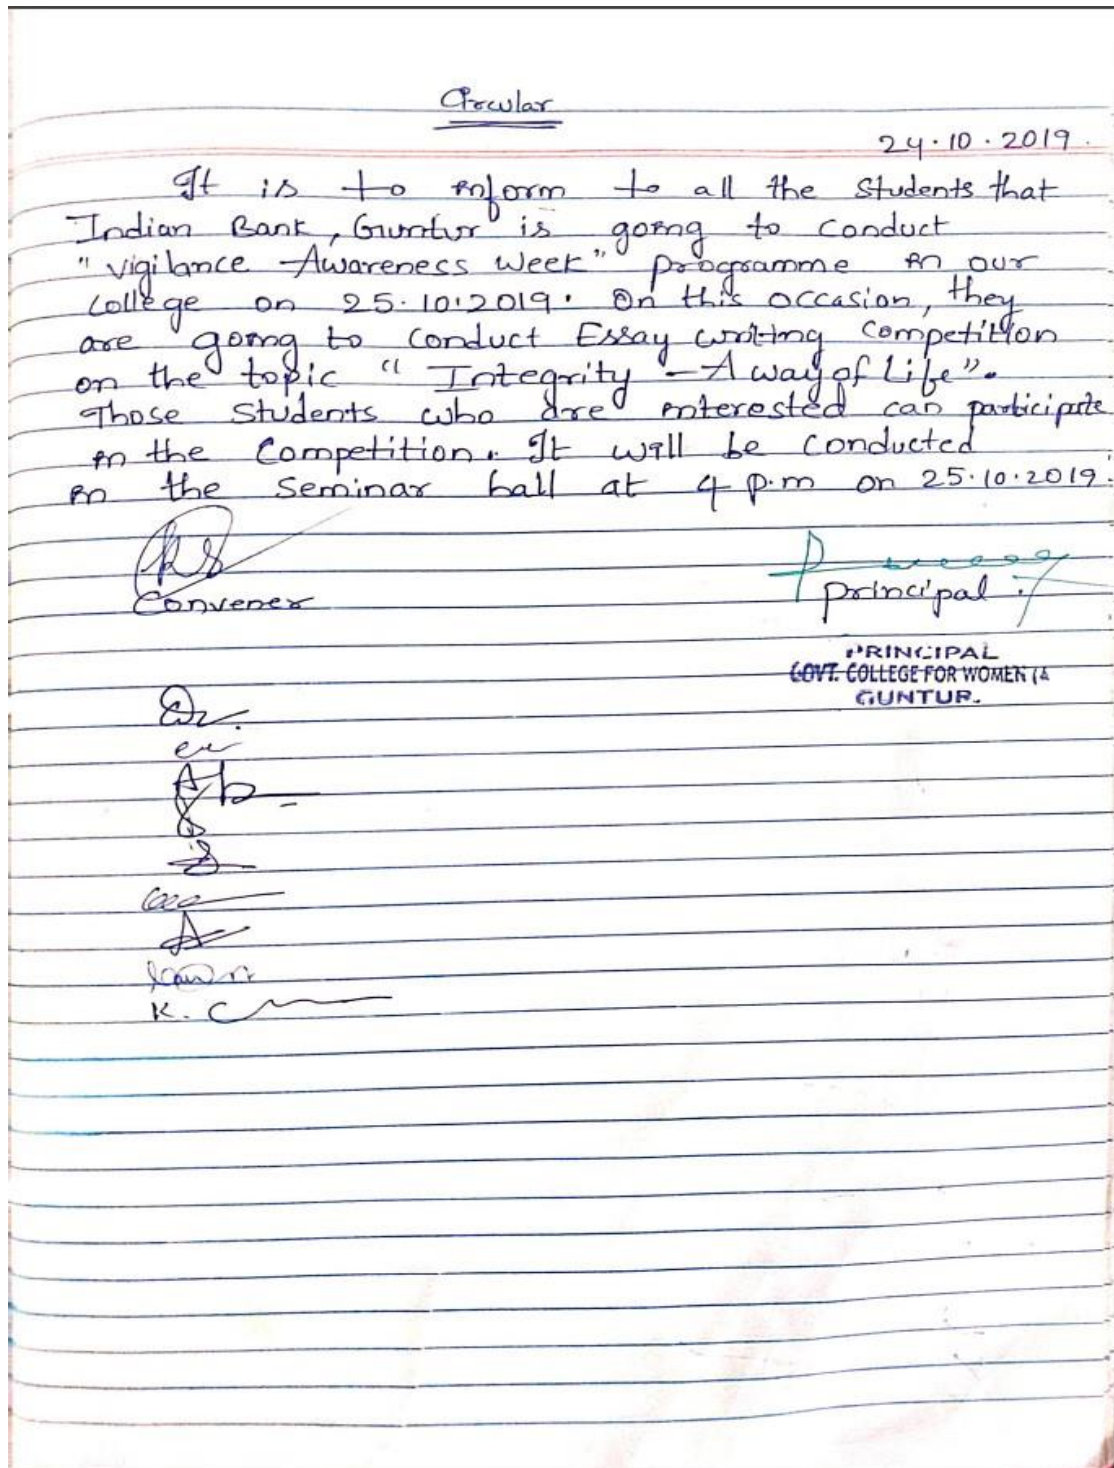 Circular
24.10.2019.
It is to inform to all the Students that
Indian Bank, Guntur is going to conduct
"Vigilance Awareness Week" programme in our
college on 25.10.2019. On this occasion, they
are going to conduct Essay writing Competition
on the topic "Integrity - A way of Life".
Those Students who are interested can participate
in the Competition. It will be conducted
in the Seminar hall at 4 p.m on 25.10.2019.
Convener
Principal
PRINCIPAL
GOVT. COLLEGE FOR WOMEN (A
GUNTUR.
K. C